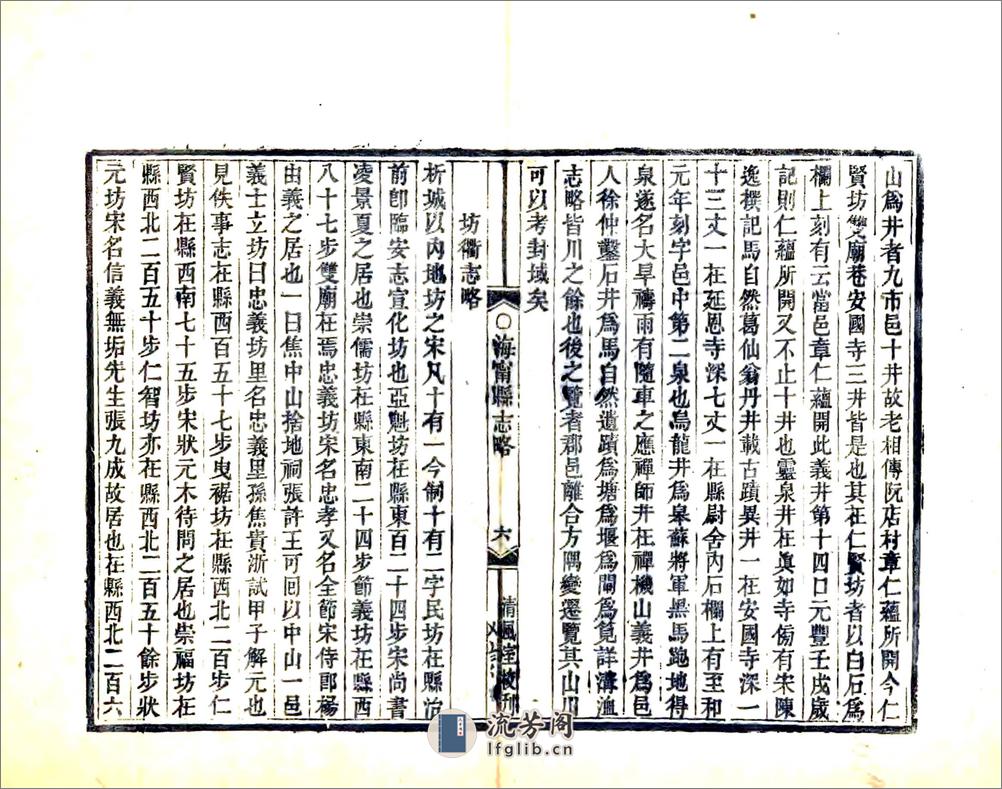 山爲井者九市邑十井故老相傳阮店村章仁蘊所開今仁
賢坊雙廟巷安國寺三井皆是也其在仁賢坊者以白石爲
欄上刻有云當邑章仁蘊開此義井第十四口元豐壬戌歲
記則仁蘊所開又不止十井也靈泉井在眞如寺傍有宋陳
逸撰記馬自然葛仙翁丹井載古蹟異井一在安國寺深一
十三丈一在延恩寺深七丈一在縣尉舍內石欄上有至和
元年刻字邑中第二泉也烏龍井爲皋蘇將軍墨馬跑地得
泉遂名大旱禱雨有隨車之應禪師井在禪機山義井爲邑
人徐仲鑿石井爲馬自然遺蹟爲塘爲堰爲閘爲筧詳溝洫
志略皆川之餘也後之覽者郡邑離合方隅變遷覽其山川
可以考封域矣
坊衢志略
海甯縣志略
六
清風室校刊
析城以內地坊之宋凡十有一今制十有二字民坊在縣治
前卽臨安志宣化坊也亞魁坊在縣東百二十四步宋尚書
凌景夏之居也崇儒坊在縣東南二十四步節義坊在縣西
八十七步雙廟在焉忠義坊宋名忠孝又名全節宋侍郎楊
由義之居也一曰焦中山捨地祠張許王可囘以中山一邑
義士立坊曰忠義坊里名忠義里孫焦貴浙試甲子解元也
見佚事志在縣西百五十七步曳裾坊在縣西北二百步仁
賢坊在縣西南七十五步宋狀元木待問之居也崇福坊在
縣西北二百五十步仁智坊亦在縣西北二百五十餘步狀
元坊宋名信義無垢先生張九成故居也在縣西北二百六
流芳阁
lfglib.cn